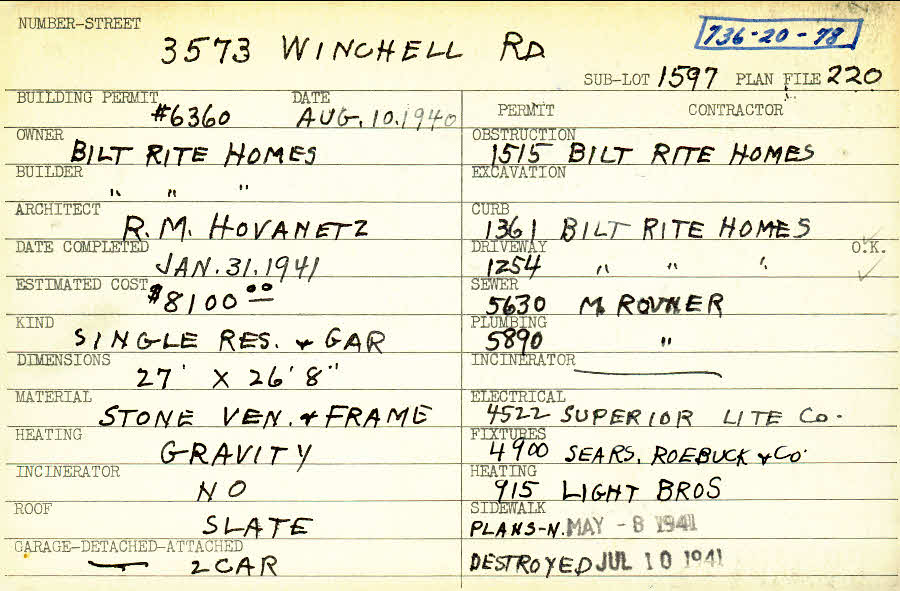 NUMBER-STREET
3573 WINCHELL RD
736-20-78
SUB-LOT 1597 PLAN FILE 220
BUILDING PERMIT DATE
#6360 AUG. 10. 1940
OWNER
BILT RITE HOMES
BUILDER
" " "
ARCHITECT
R. M. HOVANETZ
DATE COMPLETED
JAN. 31. 1941
ESTIMATED COST
$8100 00
KIND
SINGLE RES. & GAR
DIMENSIONS
27' X 26' 8"
MATERIAL
STONE VEN. & FRAME
HEATING
GRAVITY
INCINERATOR
NO
ROOF
SLATE
GARAGE-DETACHED-ATTACHED
2 CAR
PERMIT CONTRACTOR
OBSTRUCTION
1515 BILT RITE HOMES
EXCAVATION
CURB
1361 BILT RITE HOMES
DRIVEWAY O.K.
1254 " " "
SEWER
5630 M. ROVNER
PLUMBING
5890 "
INCINERATOR
ELECTRICAL
4522 SUPERIOR LITE Co.
FIXTURES
4900 SEARS, ROEBUCK & Co.
HEATING
915 LIGHT BROS
SIDEWALK
PLANS-N. MAY - 8 1941
DESTROYED JUL 10 1941